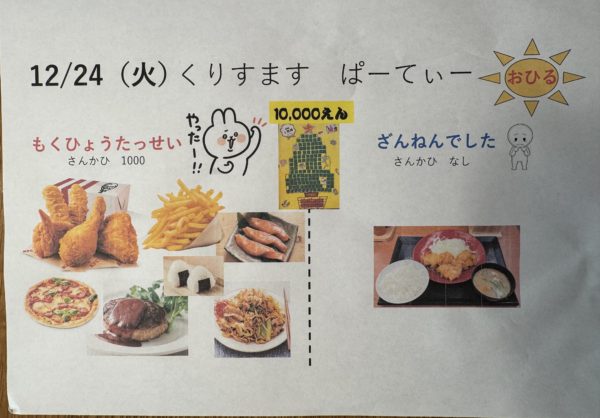 12/24（火）くりすます　ぱーてぃー
おひる
やったー!!
10,000えん
もくひょうたっせい
さんかひ　1000
ざんねんでした
さんかひ　なし